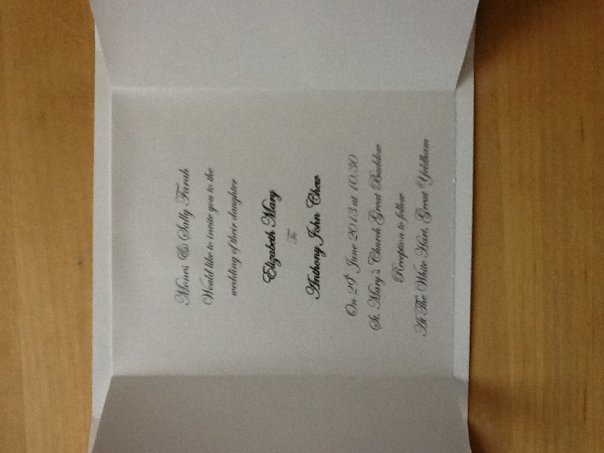 Mones & Sally Farah
Would like to invite you to the
wedding of their daughter
Elizabeth Mary
To
Anthony John Chew
On 29th June 2013 at 10:30
St. Mary's Church Great Baddow
Reception to follow
At The White Hart, Great Yeldham